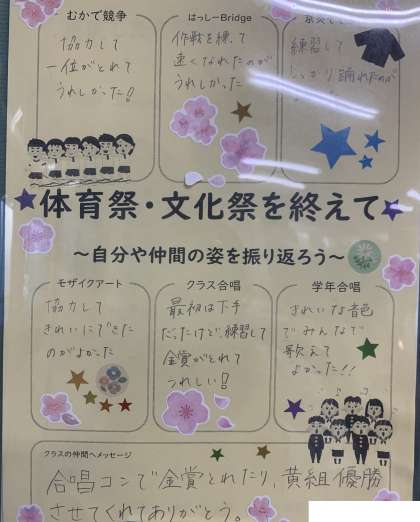 むかで競争
協力して
一位がとれて
うれしかった!
はっしーBridge
作戦を練って
速くなれたのが
うれしかった
練習して
しっかり踊れたのが
体育祭・文化祭を終えて
〜自分や仲間の姿を振り返ろう〜
モザイクアート
協力して
きれいにできた
のがよかった
クラス合唱
最初は下手
だったけど、練習して
金賞がとれて
うれしい!
学年合唱
きれいな音色
でみんなで
歌えて
よかった!!
クラスの仲間へメッセージ
合唱コンで金賞とれたり、黄組優勝
させてくれてありがとう。